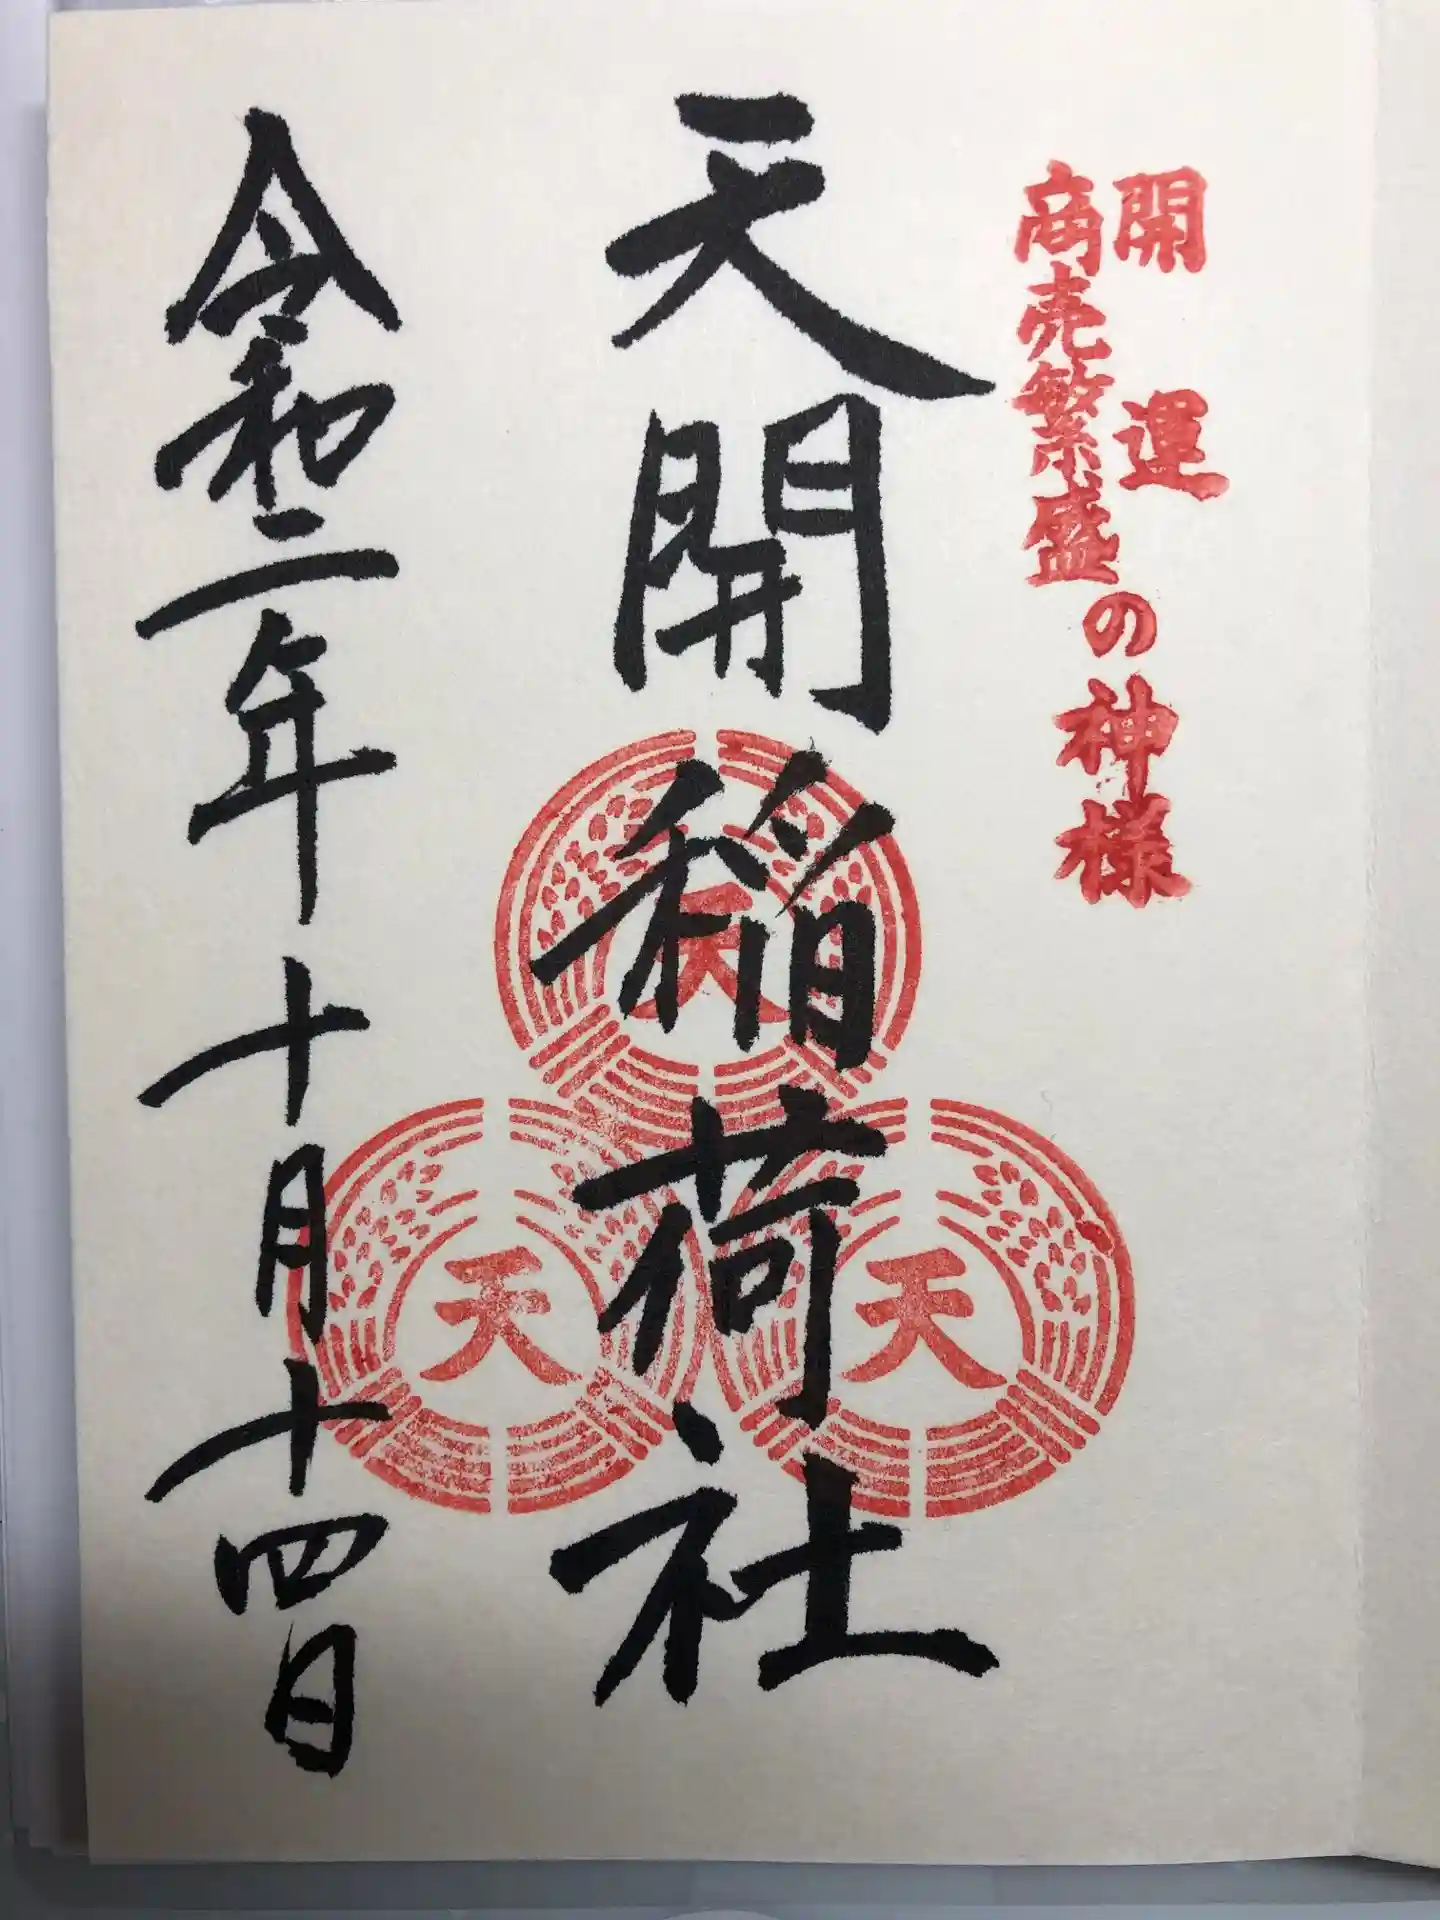 開運
商売繁盛
の神様
天開稲荷社
天
天
天
令和二年十月十四日